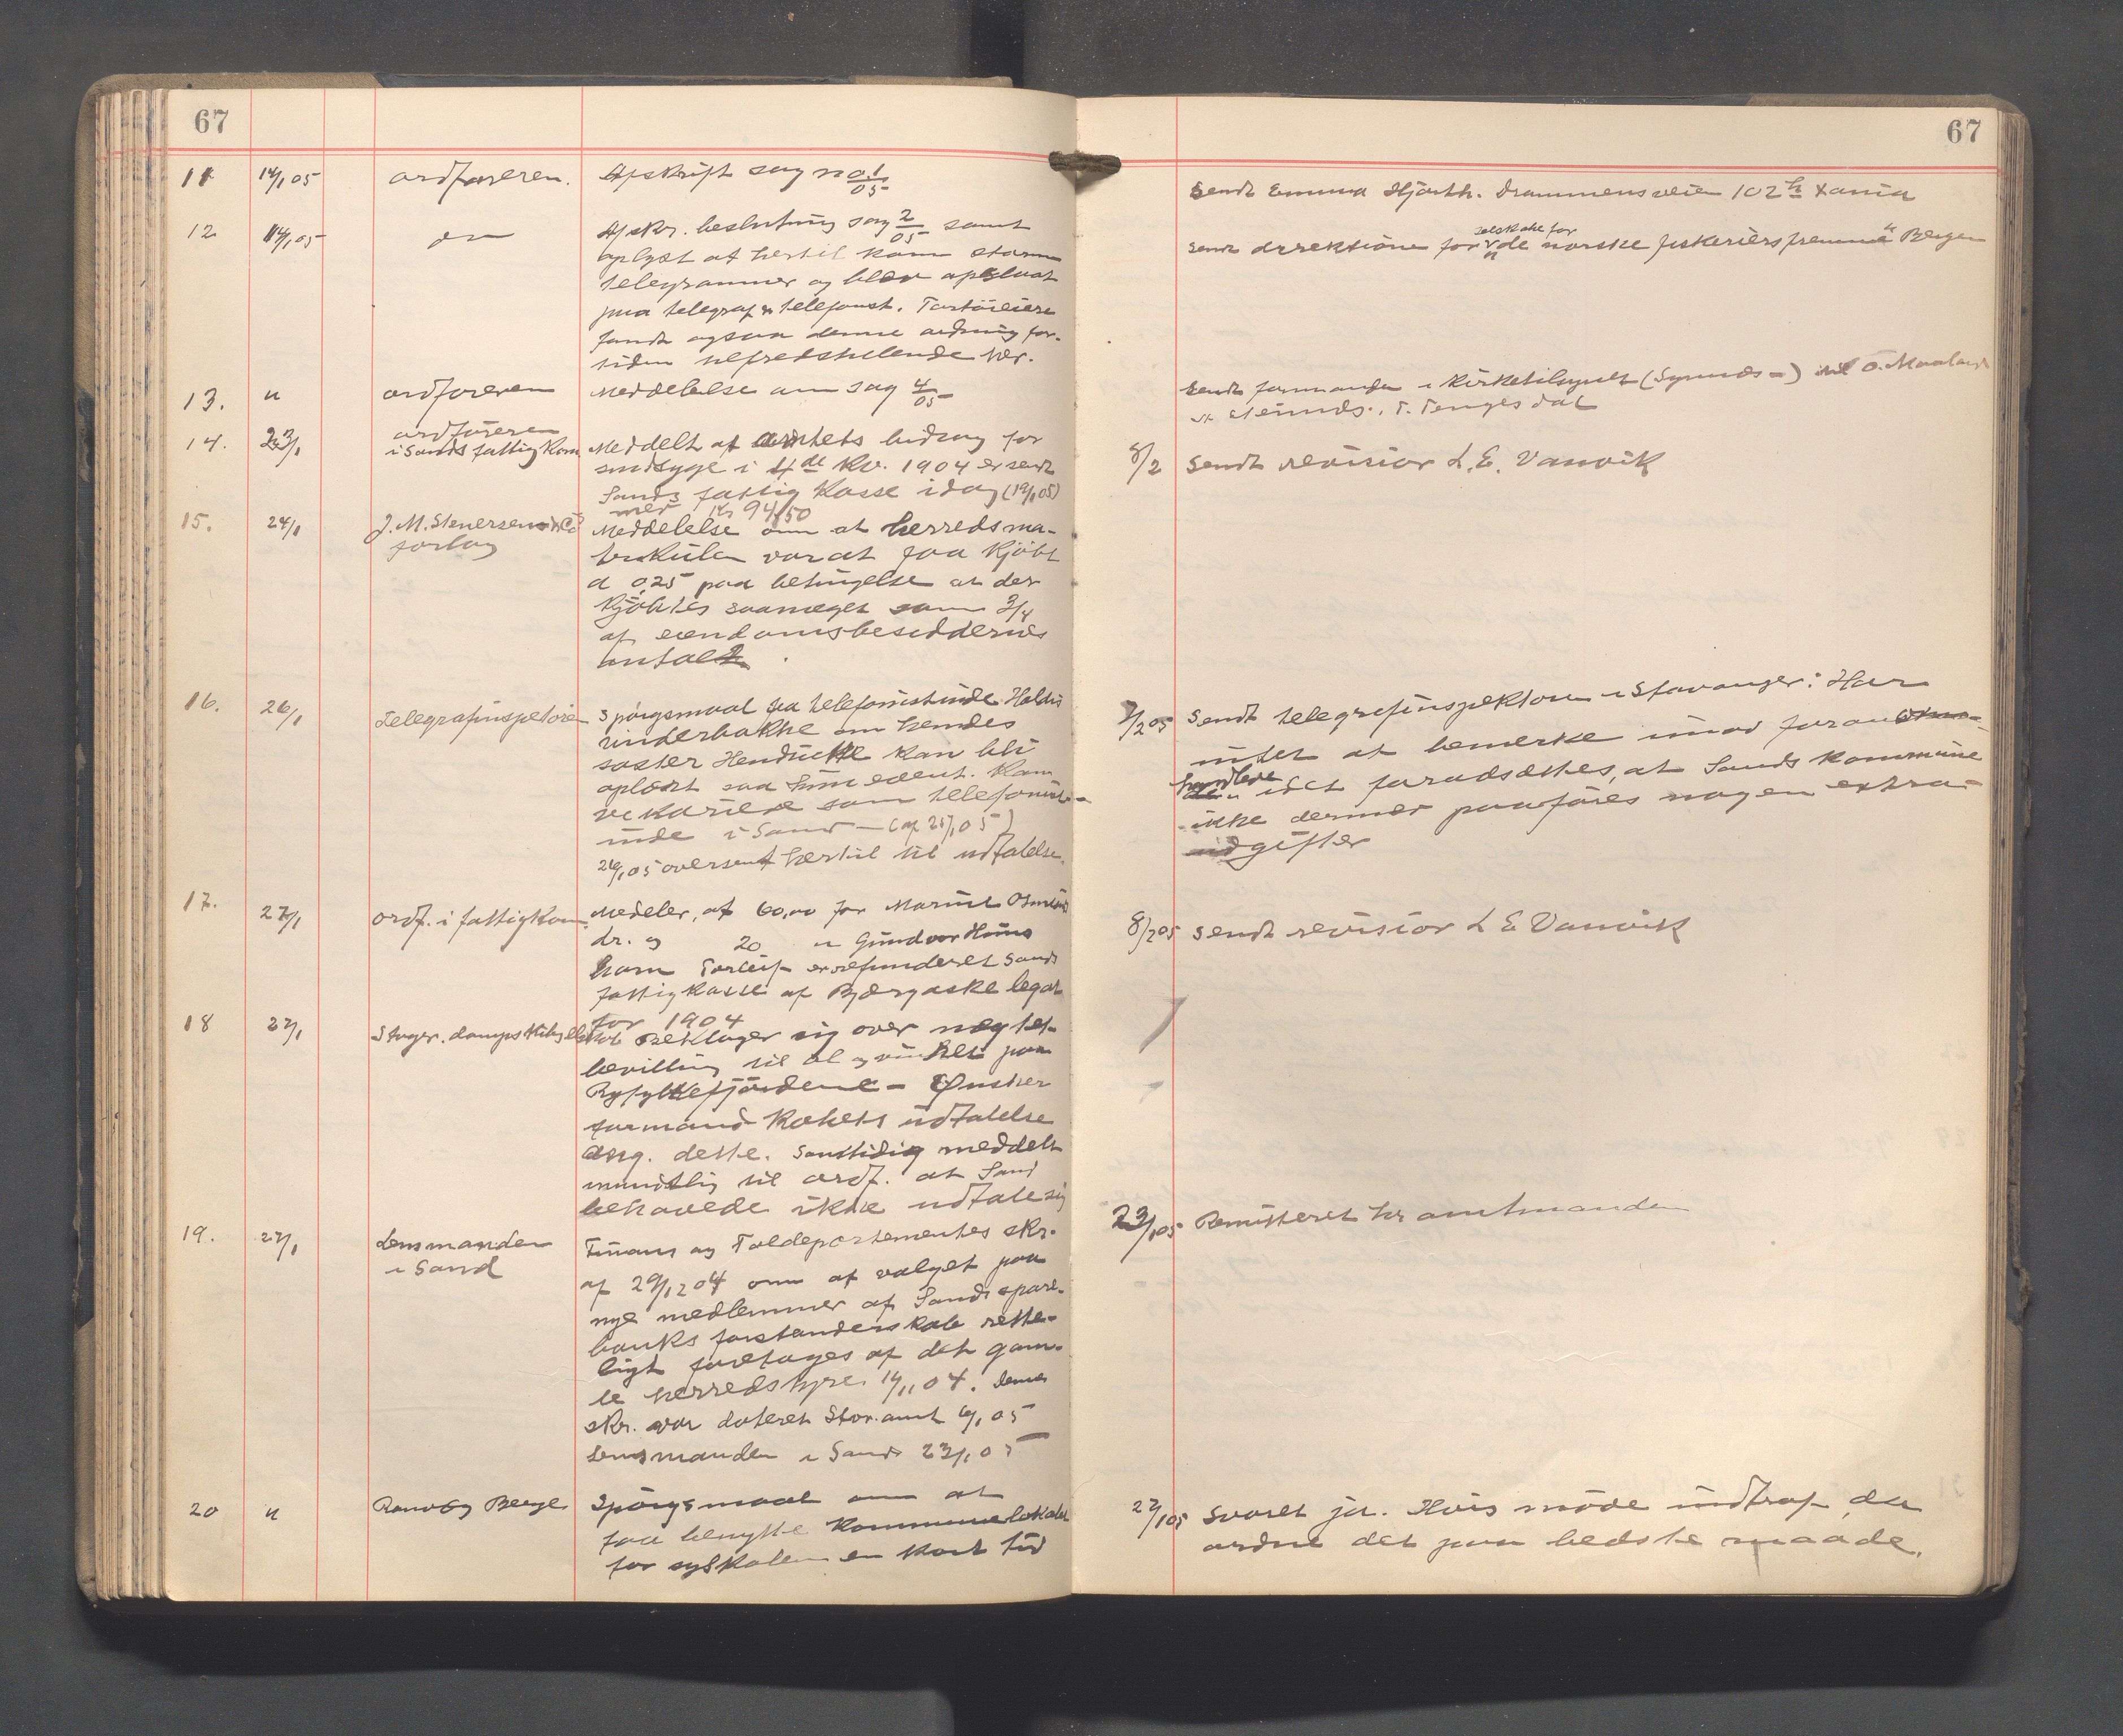 67
11 14/1 05 ordføreren. Afskrift sag no 1/05
12 14/1 05 do Afskr. beslutning sag 2/05 samt
oplyst at hertil kom storm
telegrammer og blev opslaat
paa telegraf & telefonst.
fandt ogsaa denne ordning for-
tiden tilfredstillende her.
13. " ordføreren Meddelelse om sag 4/05
14. 23/1 ordføreren
i Sands fattigkom Meddelt at amtets bidrag for
sindsyge i 4de Kv. 1904 er sendt
Sands fattigkasse idag (19/1 05)
med Kr 94,50
15. 24/1 J. M. Stenersen & Co
forlag
Meddelelse om at herredsma-
trikulen var at faa kjøbt
a 0,25 paa betingelse at der
kjøbtes saameget som 3/4
af eiendomsbesiddernes
antal
16. 26/1 Telegrafinspetøren Spørgsmaal fra telefonistinde Haldis
om hendes
søster kan bli
oplært saa hun event. kan
vikariere som telefonist-
inde i Sand — (af 21/1 05)
26/1 05 oversendt hertil til udtalelse.
17. 27/1 ordf. i fattigkom. Medeler, at 60,00 for Marthe
dr. og 20 " Gundvor
barn Torleif er refunderet Sands
fattigkasse af legat
for 1904
18 27/1 Stavger. dampskibsselskab beklager sig over nægtet
bevilling til øl og vin paa
Ryfylkefjordene – Ønsker
formandskabets udtalelse
ang. dette. Samtidig meddelt
mundtlig til ordf. at Sand
behøvede ikke udtale sig
19. 27/1 Lensmanden
i Sand
Finans og Toldepartementes skr.
af 29/12 04 om at valget paa
nye medlemmer af Sands spare-
banks forstanderskab rette-
ligt foretages af det gam-
le herredstyre 14/11 04. Denne
skr. var dateret Stav. amt 6/1 05
Lensmanden i Sand 23/1 05
20 " Spørgsmaal om at
faa benytte kommunelokalet
for syskolen en kort tid
67
Sendt Emma Hjorth. Drammensveien 102 h Xania
selskabet for
Sendt direktionen for de norske fiskeriers fremme Bergen
Sendt formanden i kirketilsynet til O. Maaland
T. Tengesdal
8/2 Sendt revisior L. E. Vanvik
7/2 05 Sendt telegrafinspektøren i Stavanger: Har
intet at bemerke imod foran
idet forudsættes, at Sands kommune
ikke dermed paaføres nogen extra
udgifter
8/2 05 Sendt revisior L E Vanvik
23/1 05 Remitteret hr amtmanden
27/1 05 Svaret ja. Hvis møde indtraf, da
ordne det paa bedste maade.